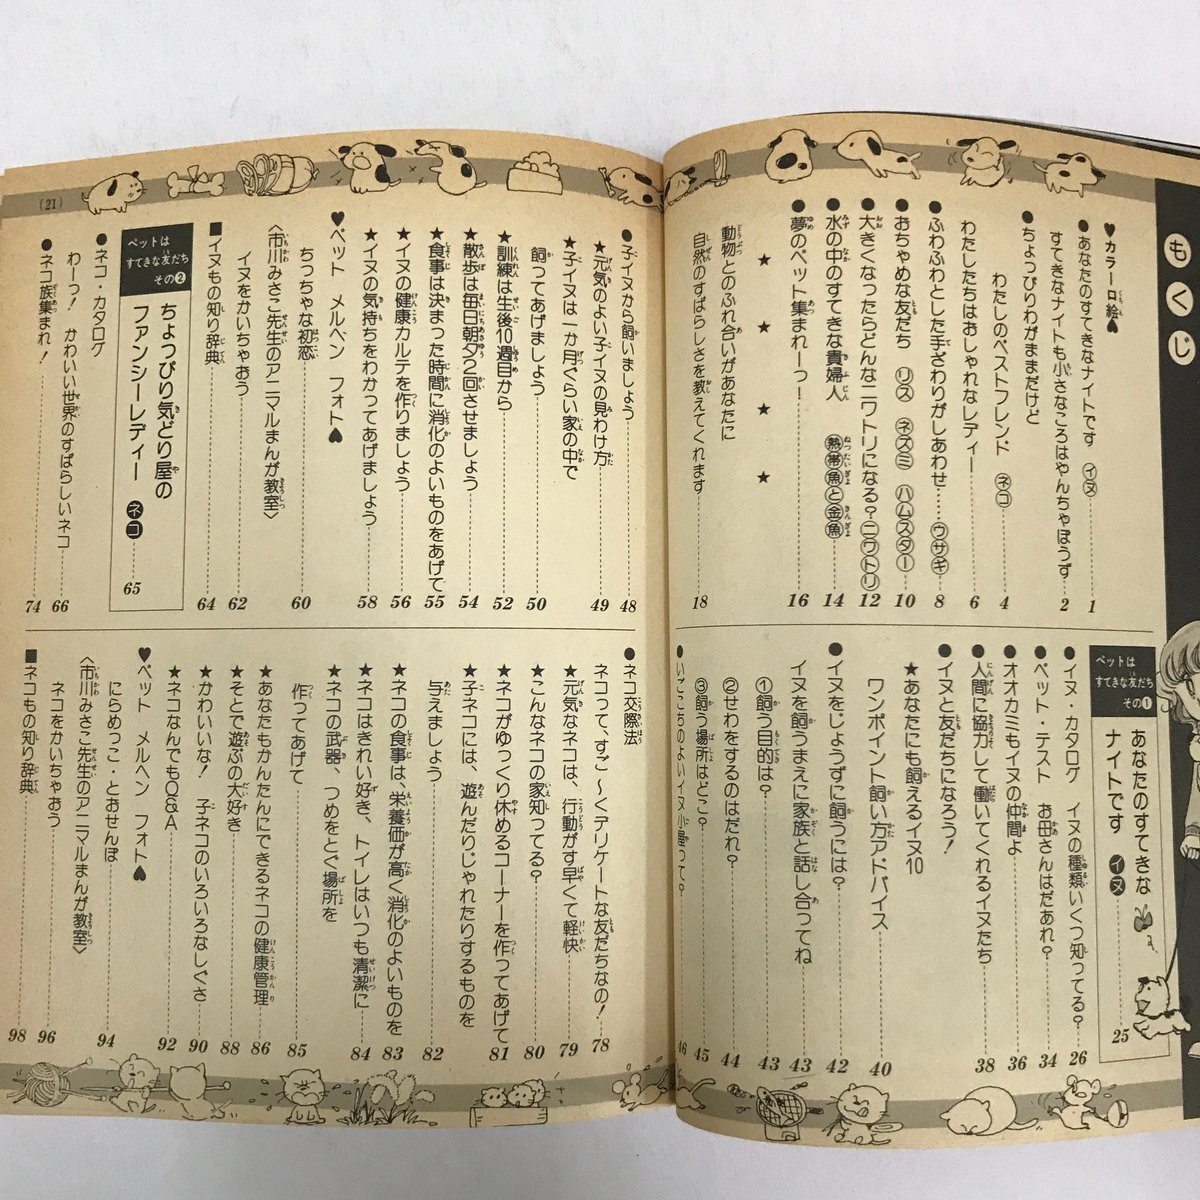 もくじ
♥カラー口絵♠
●あなたのすてきなナイトです イヌ 1
すてきなナイトも小さなころはやんちゃぼうず 2
●ちょっぴりわがままだけど
わたしのベストフレンド ネコ 4
わたしたちはおしゃれなレディー 6
●ふわふわとした手ざわりがしあわせ……ウサギ 8
●おちゃめな友だち リス ネズミ ハムスター 10
●大きくなったらどんなニワトリになる?ニワトリ 12
●水の中のすてきな貴婦人 熱帯魚と金魚 14
●夢のペット集まれーっ! 16
★ ★ ★ ★
動物とのふれ合いがあなたに
自然のすばらしさを教えてくれます 18
ペットはすてきな友だち その①
あなたのすてきな
ナイトです イヌ 25
●イヌ・カタログ イヌの種類いくつ知ってる? 26
●ペット・テスト お母さんはだあれ? 34
●オオカミもイヌの仲間よ 36
●人間に協力して働いてくれるイヌたち 38
●イヌと友だちになろう!
★あなたにも飼えるイヌ10
ワンポイント飼い方アドバイス 40
●イヌをじょうずに飼うには? 42
イヌを飼うまえに家族と話し合ってね 43
①飼う目的は? 43
②せわをするのはだれ? 44
③飼う場所はどこ? 45
●いごこちのよいイヌ小屋って? 46
●子イヌから飼いましょう 48
★元気のよい子イヌの見わけ方 49
★子イヌは一か月ぐらい家の中で
飼ってあげましょう 50
★訓練は生後10週目から 52
★散歩は毎日朝夕2回させましょう 54
★食事は決まった時間に消化のよいものをあげて 55
★イヌの健康カルテを作りましょう 56
★イヌの気持ちをわかってあげましょう 58
♥ペット メルヘン フォト♠
ちっちゃな初恋 60
〈市川みさこ先生のアニマルまんが教室〉
イヌをかいちゃおう 62
■イヌもの知り辞典 64
ペットはすてきな友だち その②
ちょっぴり気どり屋の
ファンシーレディー ネコ 65
●ネコ・カタログ
わーっ! かわいい世界のすばらしいネコ 66
●ネコ族集まれ! 74
●ネコ交際法
ネコって、すご〜くデリケートな友だちなの! 78
★元気なネコは、行動がす早くて軽快 79
★こんなネコの家知ってる? 80
★ネコがゆっくり休めるコーナーを作ってあげて 81
★子ネコには、遊んだりじゃれたりするものを
与えましょう 82
★ネコの食事は、栄養価が高く消化のよいものを 83
★ネコはきれい好き、トイレはいつも清潔に 84
★ネコの武器、つめをとぐ場所を
作ってあげて 85
★あなたもかんたんにできるネコの健康管理 86
★そとで遊ぶの大好き 88
★かわいいな! 子ネコのいろいろなしぐさ 90
★ネコなんでもQ&A 92
♥ペット メルヘン フォト♠
にらめっこ・とおせんぼ 94
〈市川みさこ先生のアニマルまんが教室〉
ネコをかいちゃおう 96
■ネコもの知り辞典 98
(21)